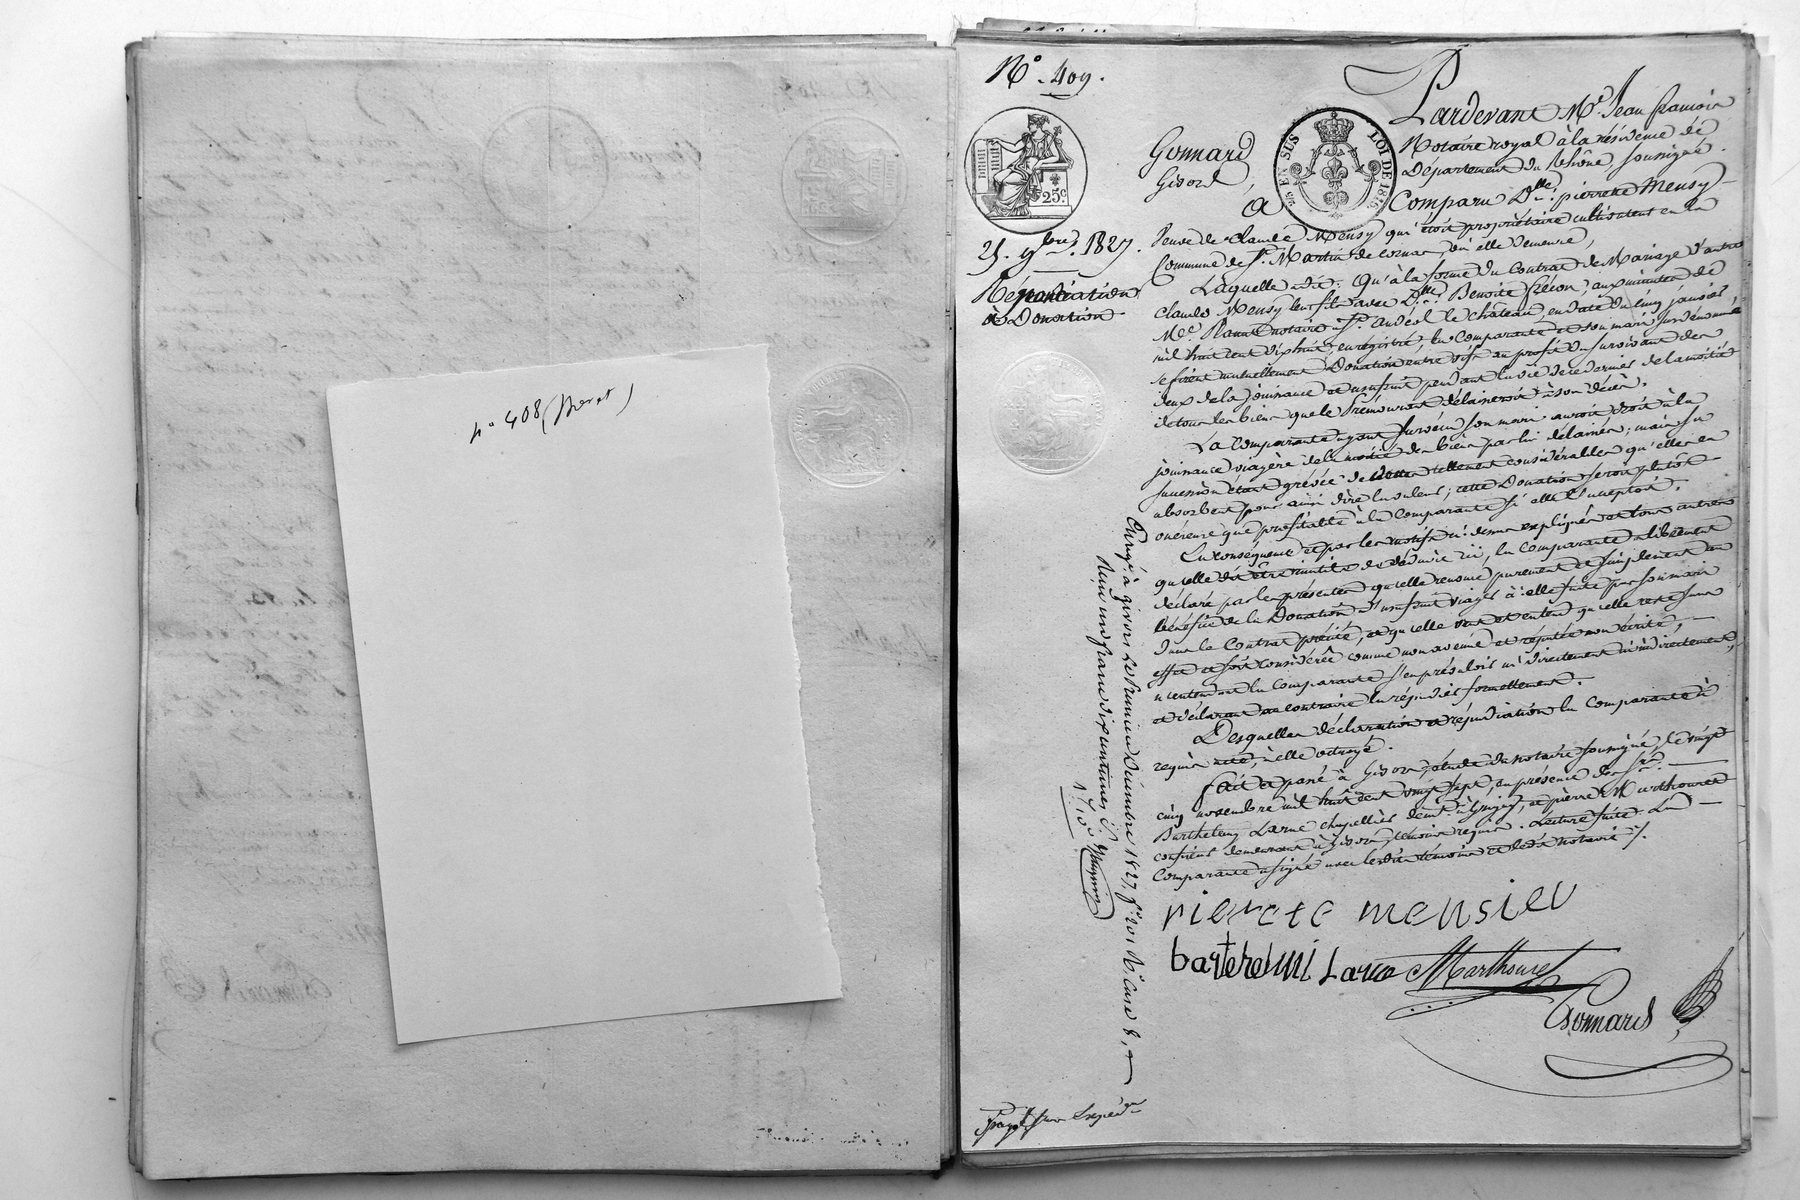 n° 408 (Brevet)
N° 409.
25 9bre 1827.
Répudiation
de Donation
25c
EN SUS
LOI DE 1816
Pardevant Me Jean François
Gonnard Notaire royal à la résidence de
Givors, Département du Rhône, soussigné.
A Comparu Dlle pierrette Mensy
Veuve de claude Mensy qui étoit propriétaire cultivateur en la
Commune de St Martin de cornas, où elle demeure,
Laquelle a dit: Qu'à la forme du Contrat de Mariage d'entre
claude Mensy leur fils avec Dlle Benoite fréon, aux minutes de
Me notaire à St Andéol le château, en date du cinq janvier
mil huit cent dix huit, enregistré, la Comparante et son mari susdénommé
se firent mutuellement Donation entre vifs au profit du survivant des
deux de la jouissance et usufruit pendant la vie de ce dernier de la moitié
de tous les biens que le prémourant délaisseroit à son décès.
La comparante ayant survécu son mari auroit droit à la
jouissance viagère de la moitié des biens par lui délaissés; mais sa
succession étant grévée de dettes tellement considérables qu'elles en
absorbent pour ainsi dire la valeur; cette Donation seroit plutôt
onéreuse que profitable à la comparante si elle l'acceptoit.
En conséquence et par les motifs ci dessus expliqués et tous autres
qu'elle dit être inutile de déduire ici, la comparante a librement
déclaré par les présentes qu'elle renonce purement et simplement au
bénéfice de la Donation d'usufruit viager à elle faite par son mari
dans le Contrat précité, et qu'elle veut et entend qu'elle reste sans
effet et soit considérée comme non avenue et réputée non écrite,
n'entendant la comparante s'en prévaloir ni directement ni indirectement,
et déclarant au contraire la répudier formellement.
Desquelles déclaration et répudiation la comparante a
requis acte, à elle octroyé.
fait et passé à Givors, étude du notaire soussigné, le vingt
cinq novembre mil huit cent vingt sept, en présence des Srs
Barthelemy Larue chapellier demt à Grigny, et pierre Marthouret
confiseur demeurant à Givors, témoins requis. Lecture faite La
Comparante a signé avec lesdits témoins et ledit notaire ./.
pierete mensieu
bartelemi Larue Marthouret
Gonnard
Enregé à givors le premier Décembre 1827, fo 101 Ro Case 8,
Reçu un franc dix centimes
1f. 10c